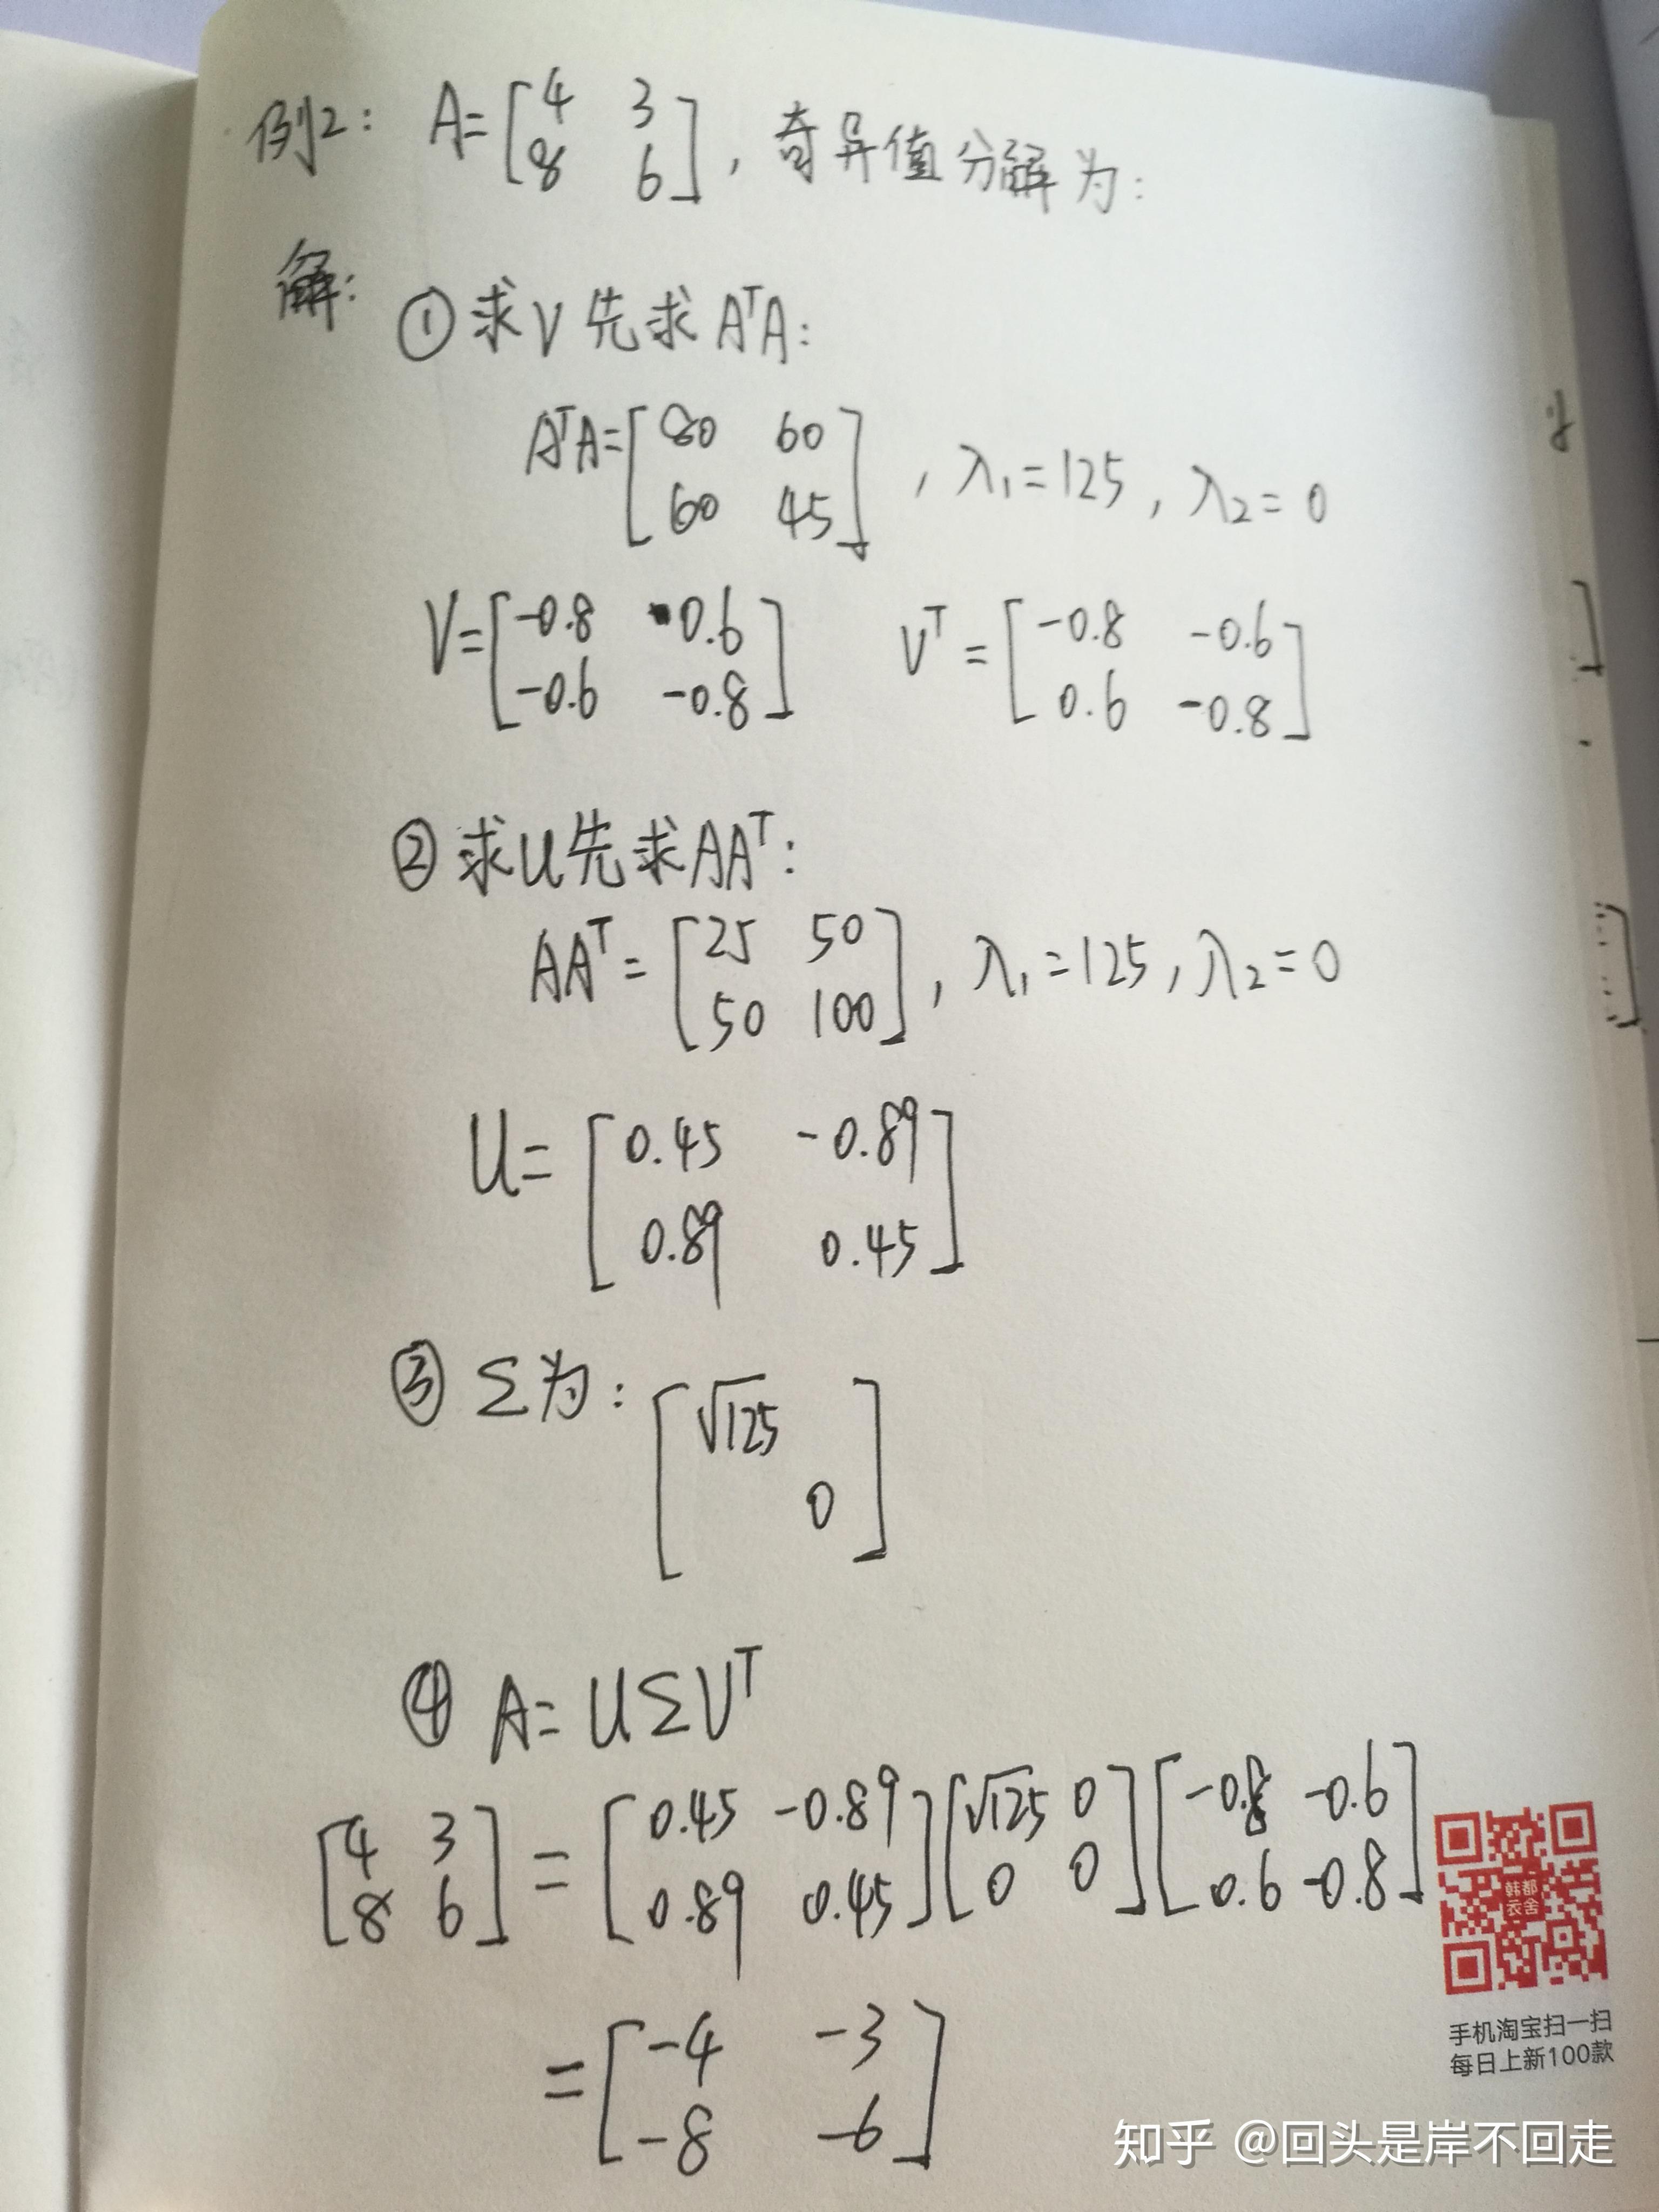 例2: A=[4 3
8 6], 奇异值分解为:
解: ①求V先求AᵀA:
AᵀA=[80 60
60 45], λ₁=125, λ₂=0
V=[-0.8 0.6 Vᵀ=[-0.8 -0.6
-0.6 -0.8] 0.6 -0.8]
②求U先求AAᵀ:
AAᵀ=[25 50
50 100], λ₁=125, λ₂=0
U=[0.45 -0.89
0.89 0.45]
③Σ为: [√125
0]
④ A=UΣVᵀ
[4 3 = [0.45 -0.89 [√125 0 [-0.8 -0.6
8 6] 0.89 0.45] 0 0] 0.6 -0.8]
=[-4 -3
-8 -6]
韩都
衣舍
手机淘宝扫一扫
每日上新100款
知乎 @回头是岸不回走